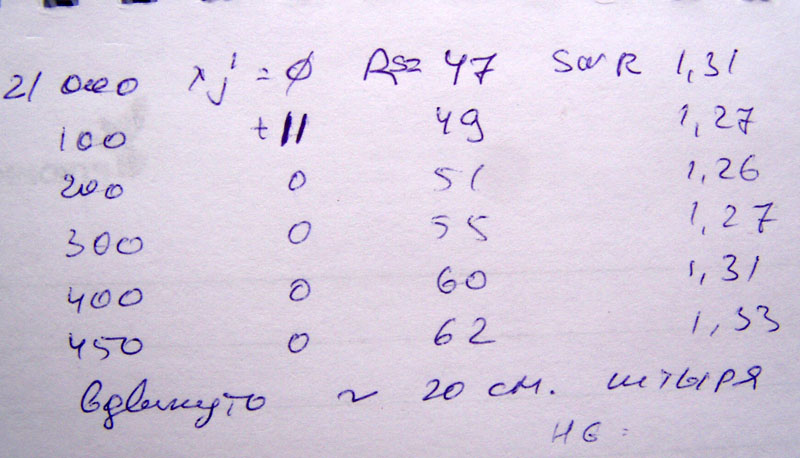 21 000 xj = ∅ Rs= 47 SWR 1,31
100 +11 49 1,27
200 0 51 1,26
300 0 55 1,27
400 0 60 1,31
450 0 62 1,33
вдвинуто ~ 20 см. штыря